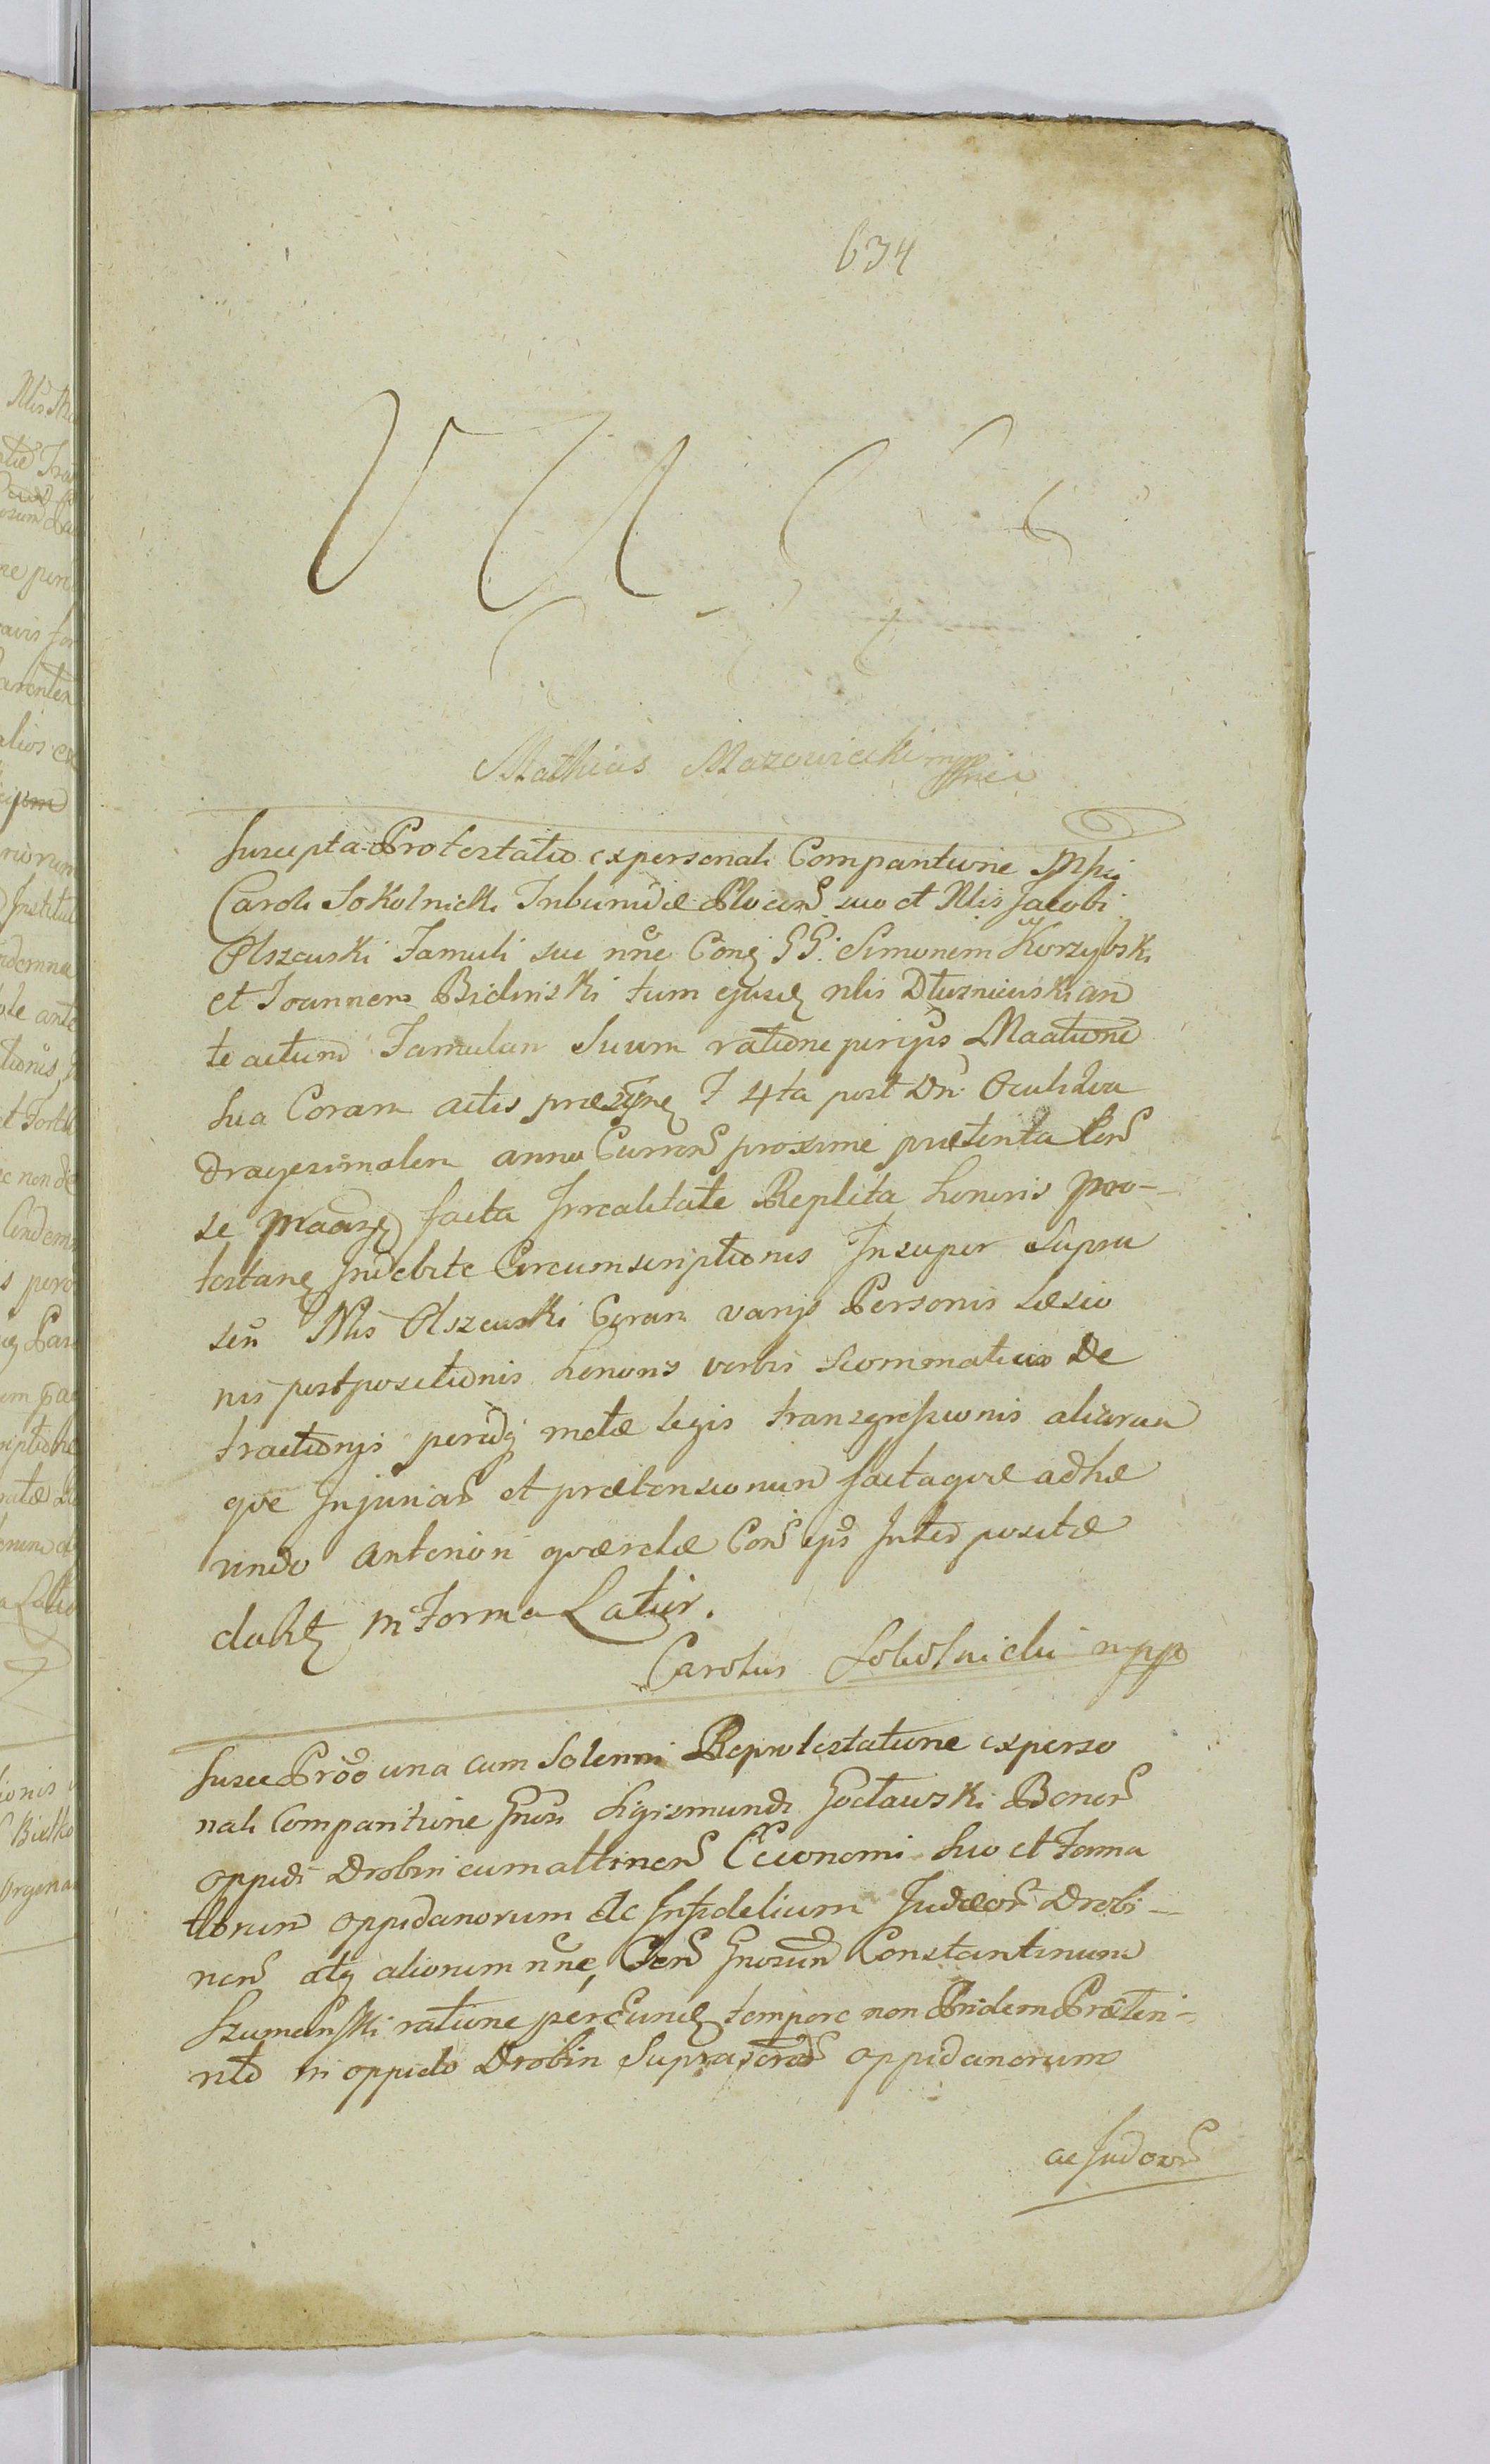 634
Mathias Mazowiecki mpp
Suscepta Protestatio ex personali Comparitione Mfci
Caroli Sokolnicki Tribunidae Plocen suo et Nlis Jacobi
Olszewski Famuli sui nne Con GG: Simonem Korzybski
et Joannem Bidinski tum ejusd nlis Dłuzniewski an
te actum Famulan Suum ratione per ipsos
Sua Coram actis F 4ta post Dn: Oculi Qua
dragesimalem anno Curren proxime praeterita
se facta Irrealitate Repleta honoris pro-
testan Indebite Circumscriptionis Insuper Supra
scri Nlis Olszewski Coram varijs Personis Laesio
nis postpositionis honoris verbis Scommaticis De
tractionis metae legis transgressionis aliarum
qve Injuriar et praetensionum factaqve adhae
rendo anteriori qvaerelae Con ips Interpositae
in Forma Latior.
Carolus Sokolnicki mpp
Susce Prŏo una cum Solenni Reprotestatione ex perso
nali Comparitione Gnosi Sigismundi Gocławski Bonor
oppidi Drobin cum attinen Oeconomi suo et Fama
torum oppidanorum ac Infidelium Judaeor Drobi-
nen atq aliorum nne, Gnosum Constantinum
Szumański ratione per eund tempore non Pridem Praeteri-
to in oppido Drobin Suprascrr oppidanorum
ac Judaeor